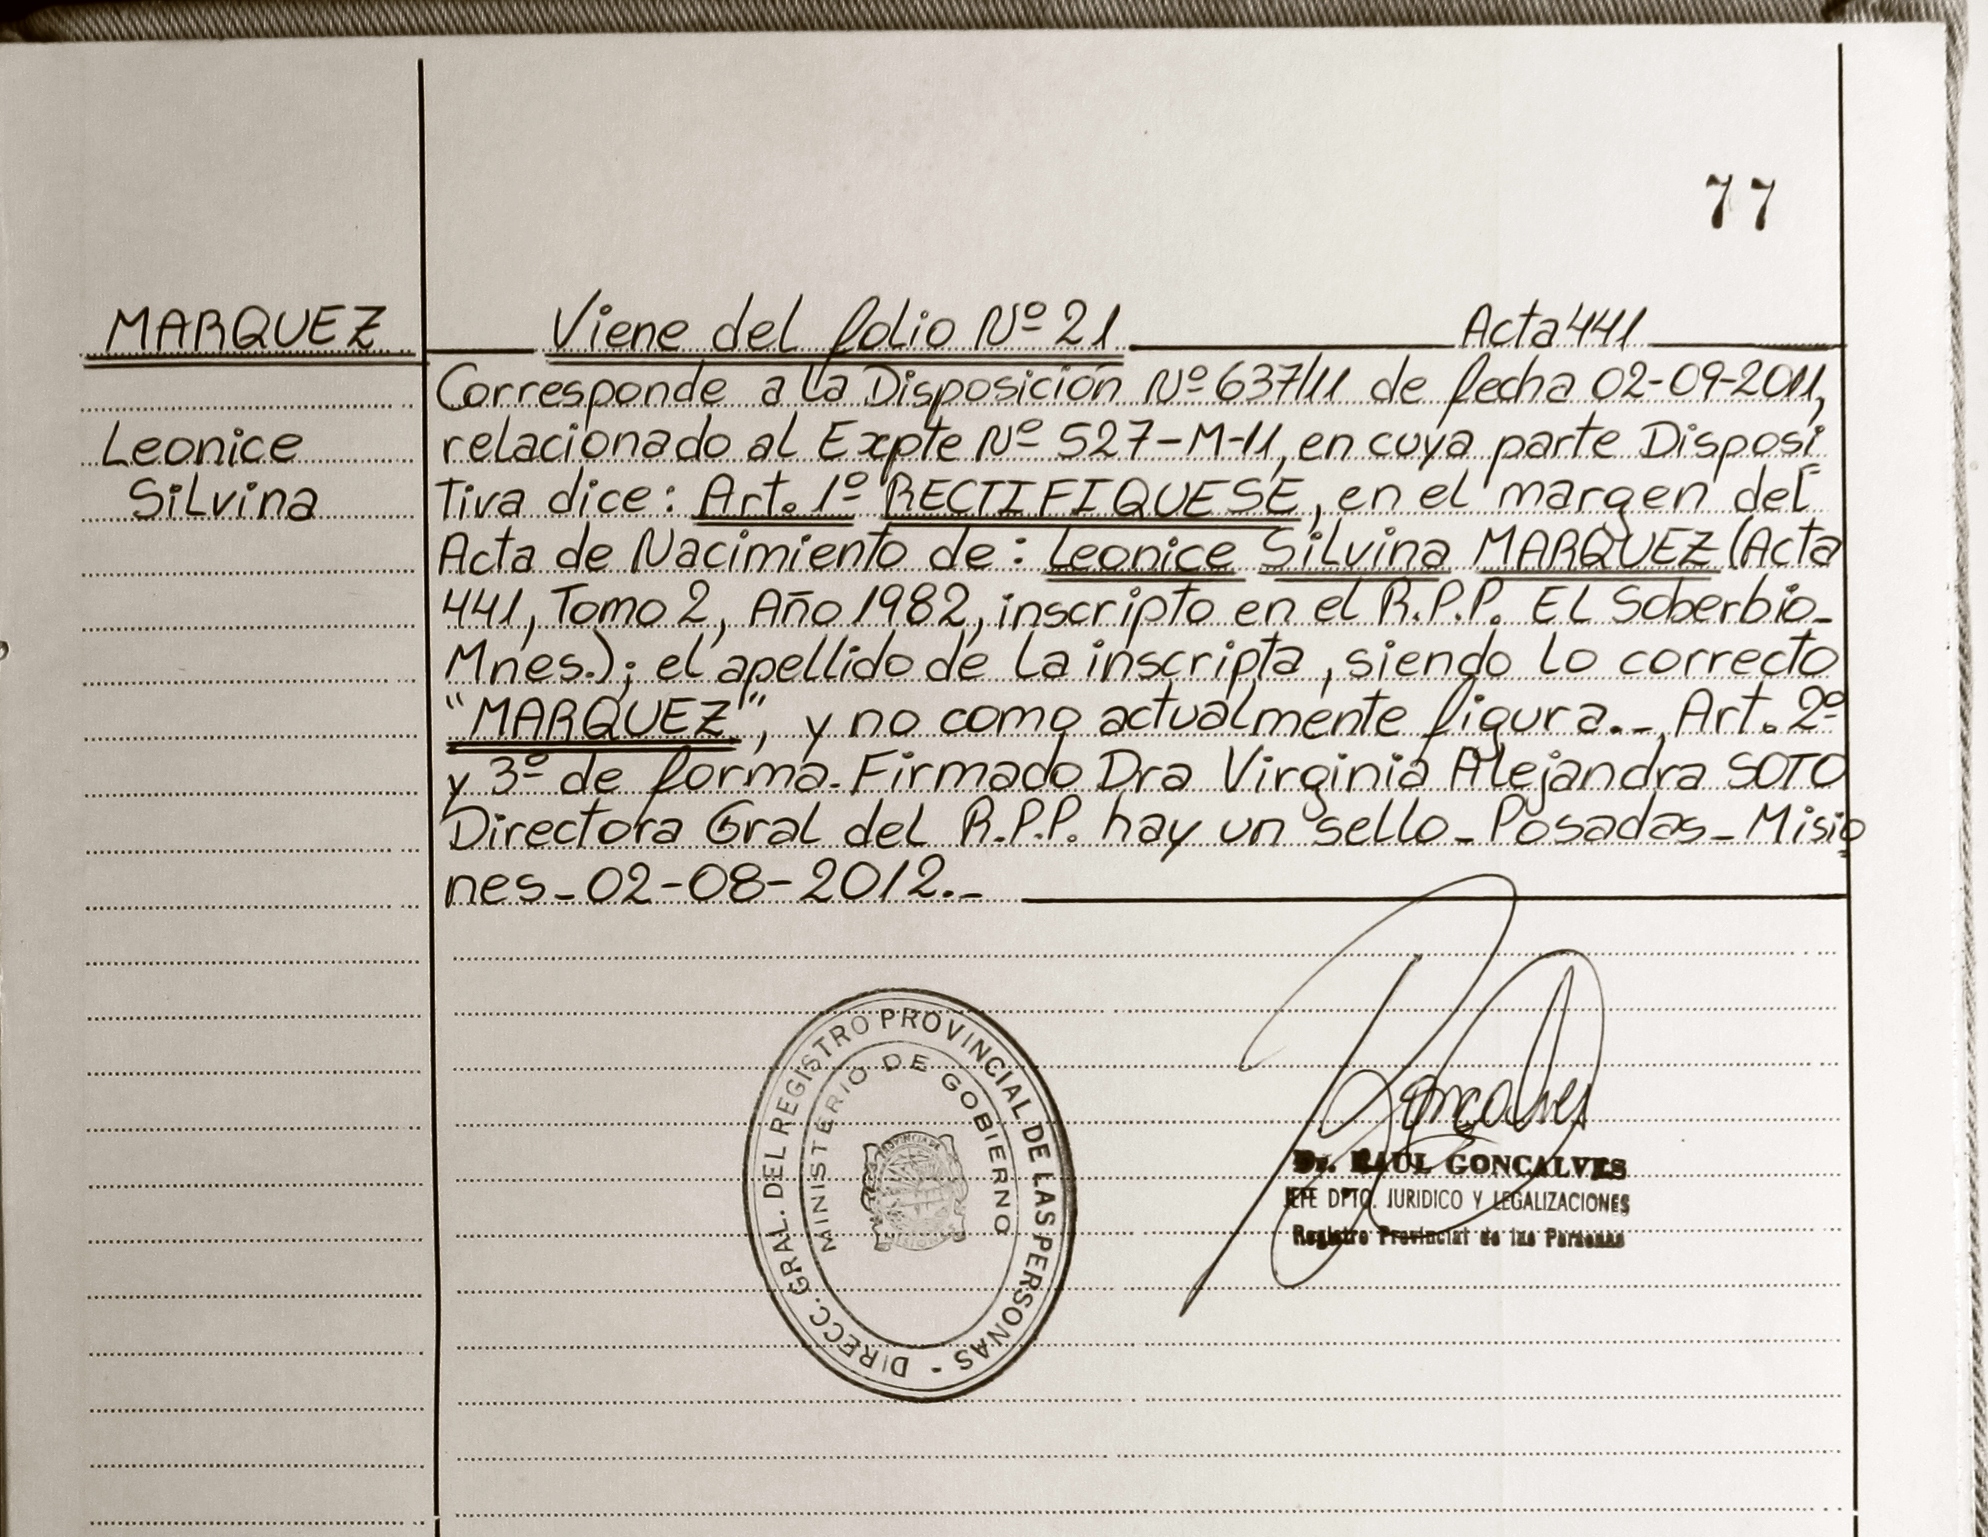 77
MARQUEZ
Leonice
Silvina
Viene del folio Nº 21 Acta 441
Corresponde a la Disposición Nº 637/11 de fecha 02-09-2011,
relacionado al Expte Nº 527-M-11, en cuya parte Disposi
Tiva dice: Art. 1º RECTIFIQUESE, en el margen del
Acta de Nacimiento de: Leonice Silvina MARQUEZ (Acta
441, Tomo 2, Año 1982, inscripto en el R.P.P. El Soberbio-
Mnes.); el apellido de la inscripta, siendo lo correcto
"MARQUEZ", y no como actualmente figura.-. Art. 2º
y 3º de forma. Firmado Dra Virginia Alejandra SOTO
Directora Gral del R.P.P. hay un sello - Posadas - Misio
nes - 02-08-2012.-
DIRECC. GRAL. DEL REGISTRO PROVINCIAL DE LAS PERSONAS -
MINISTERIO DE GOBIERNO
Goncalves
Dr. RAUL GONCALVES
JEFE DPTO. JURIDICO Y LEGALIZACIONES
Registro Provincial de las Personas